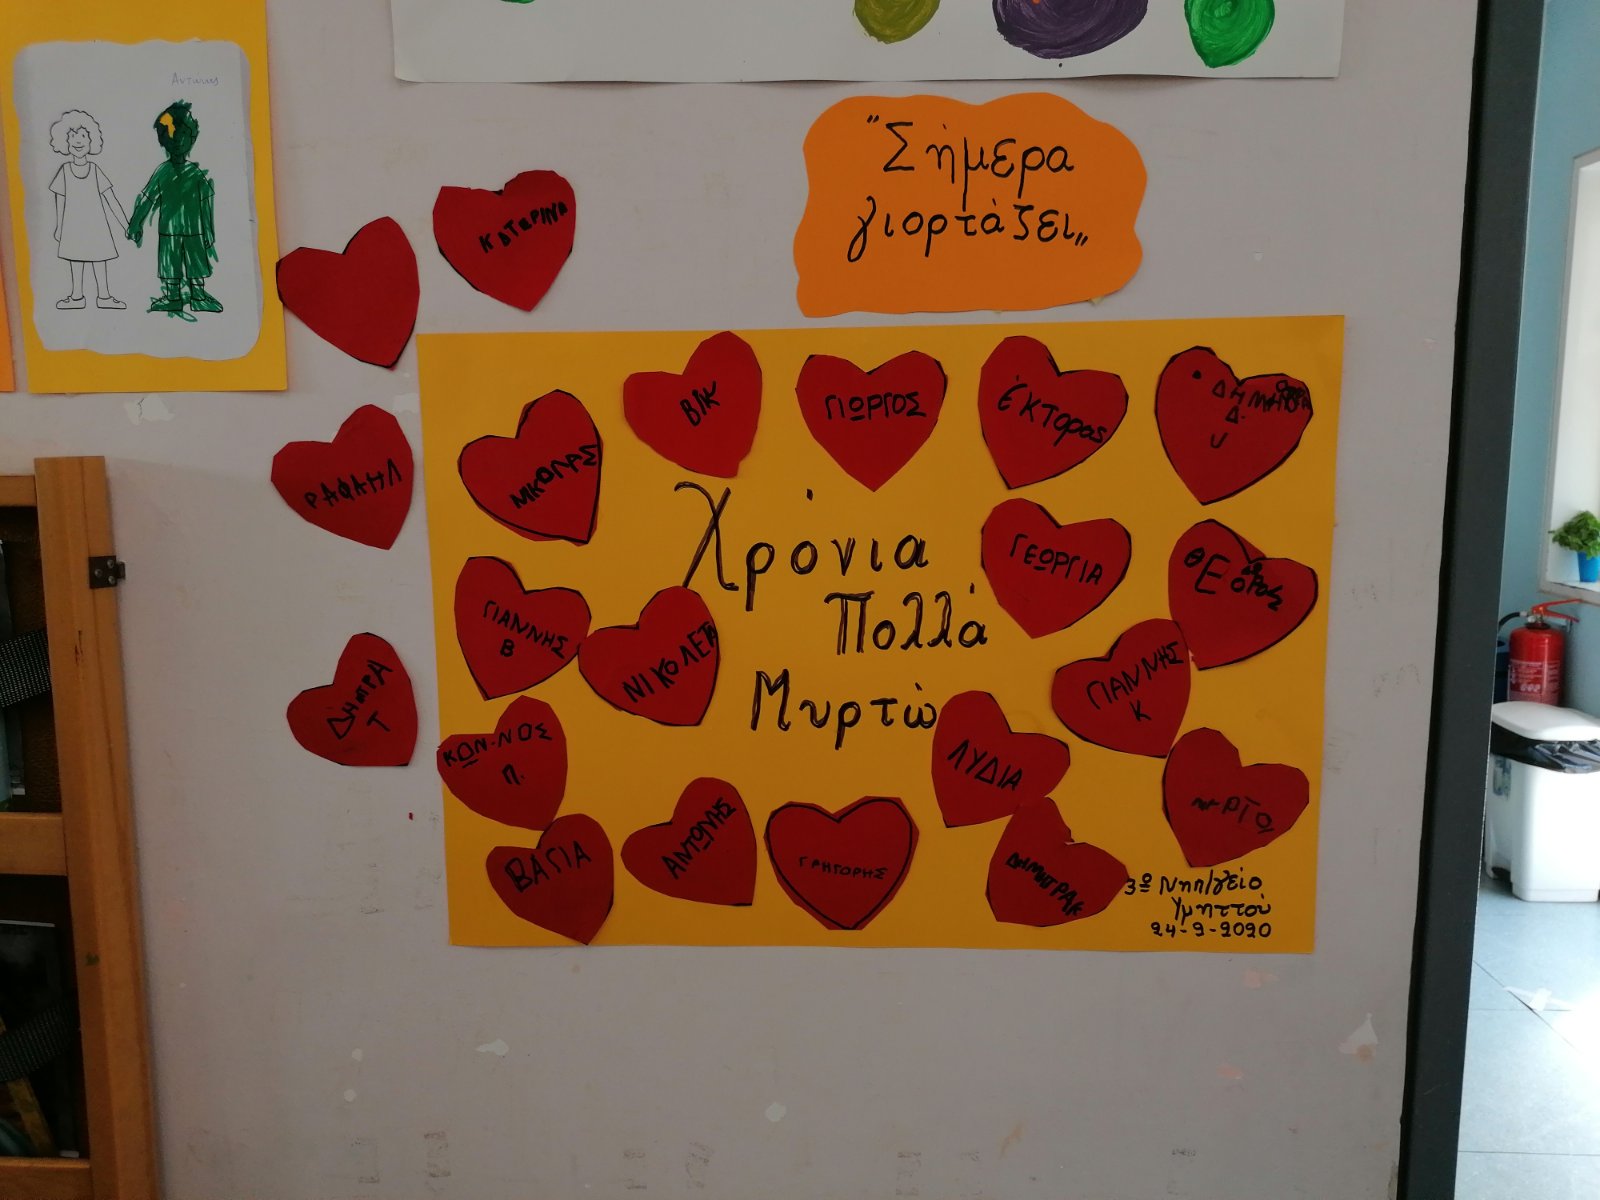 Αντώνης
"Σήμερα
γιορτάζει"
ΚΑΤΕΡΙΝΑ
ΡΑΦΑΗΛ
ΔΗΜΗΤΡΑ
Τ
ΒΙΚ
ΓΙΩΡΓΟΣ
ΈΚΤΟΡας
Δ.
ΝΙΚΟΛΑΣ
Χρόνια
Πολλά
Μυρτώ
ΓΕΩΡΓΙΑ
ΘΕ
ΓΙΑΝΝΗΣ
Β
ΝΙΚΟΛΕΤΑ
ΓΙΑΝΝΗΣ
Κ
ΚΩΝ-ΝΟΣ
Π.
ΛΥΔΙΑ
ΒΑΓΙΑ
ΑΝΤΩΝΗΣ
ΓΡΗΓΟΡΗΣ
3º Νηπ/γείο
Υμηττού
24-9-2020